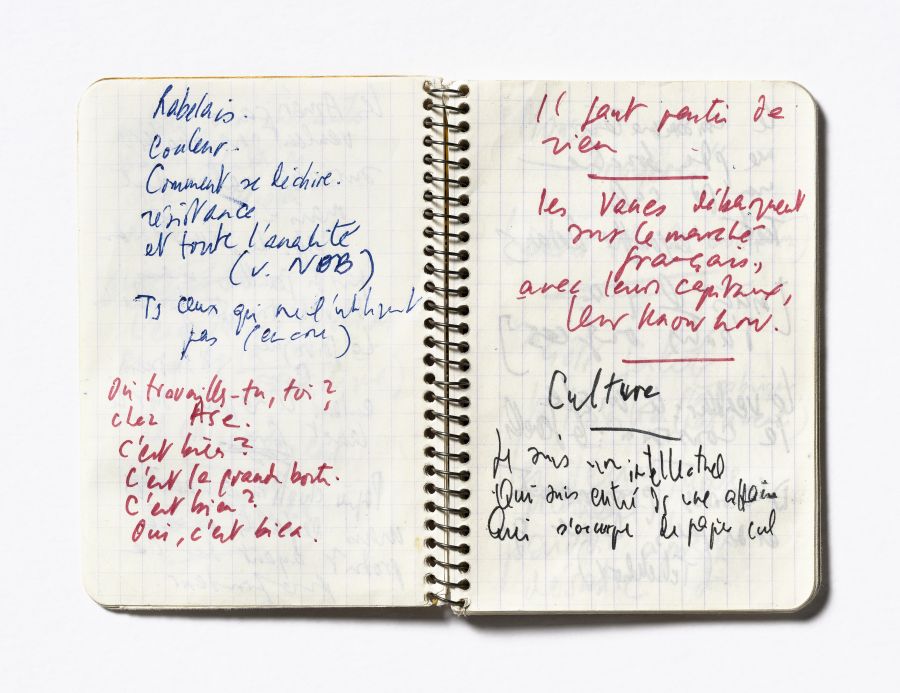 Rabelais.
Couleur.
Comment se déchire.
résistance
et toute l'analité
(v. NOB)
Ts ceux qui ne l'utilisent
pas (encore)
Où travailles-tu, toi?
chez Ase.
C'est bien?
C'est la grande boîte.
C'est bien?
Oui, c'est bien.
Il faut partir de
rien
les vaches débarquent
sur le marché
français,
avec leurs capitaux,
leur know how.
Culture
Je suis un intellectuel
Qui suis entré ds une affaire
Qui s'occupe de papier cul